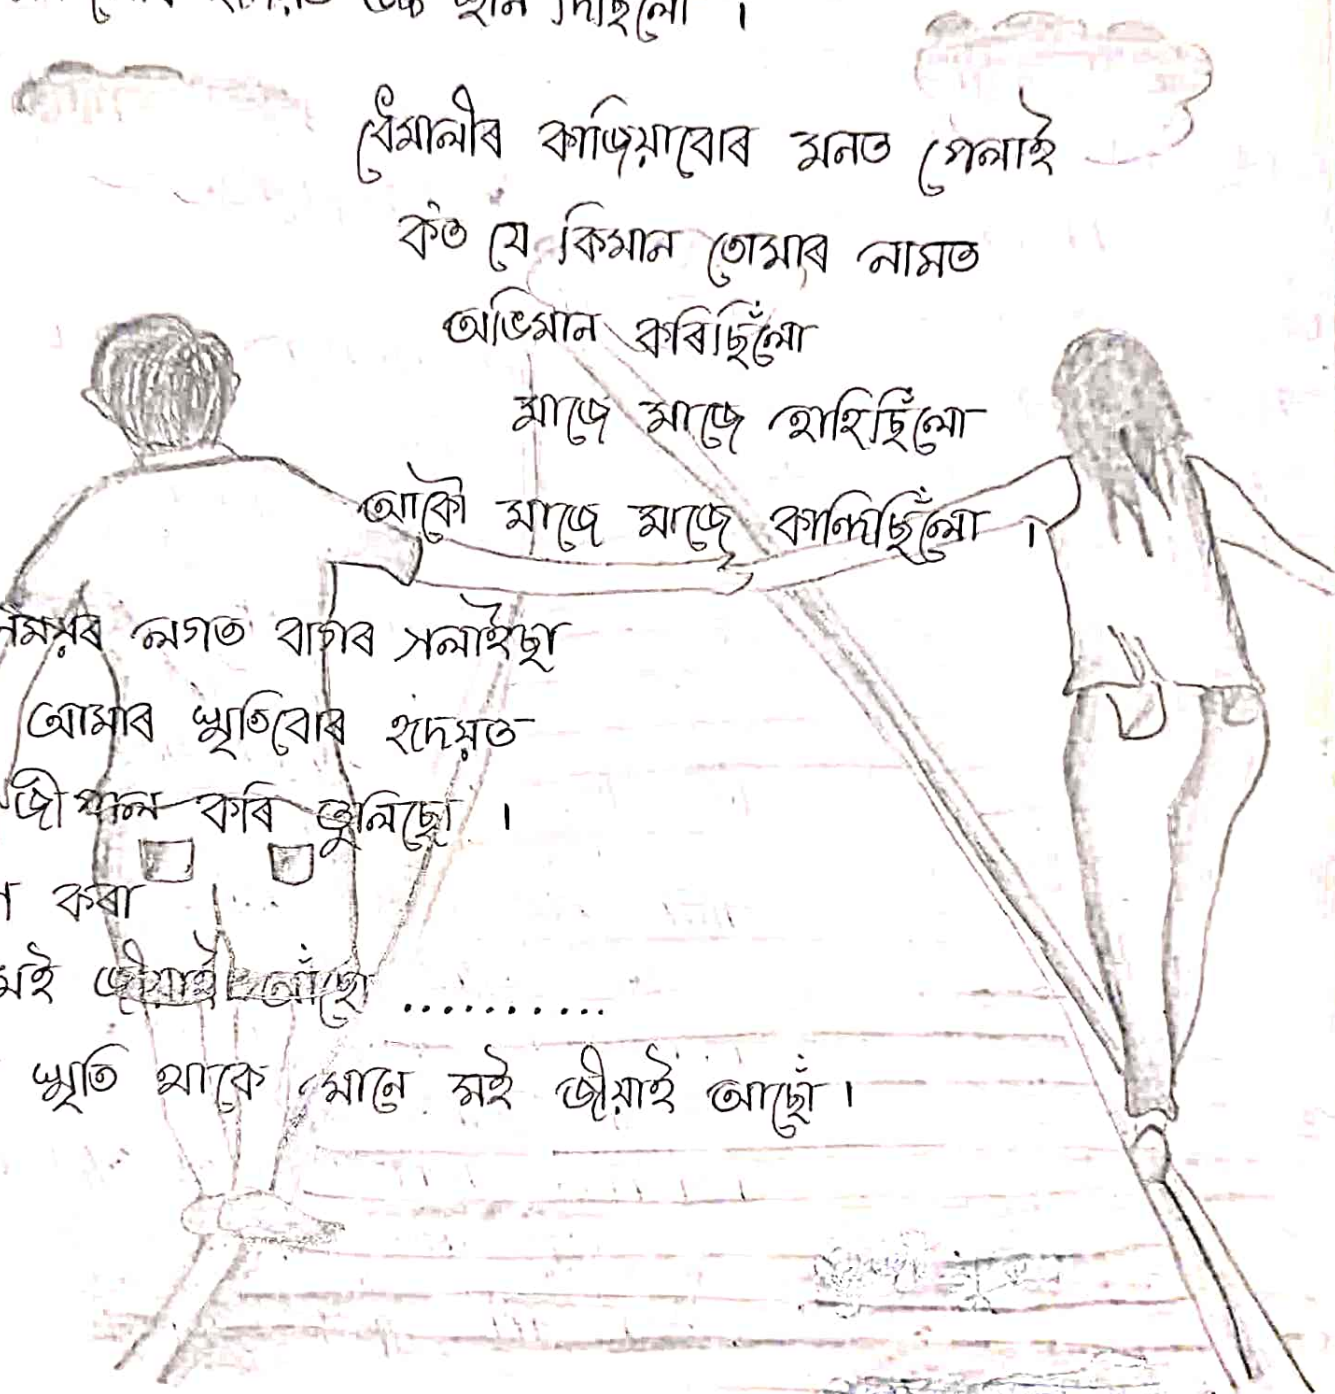 স্থান দিছিলো ।
ধেমালীৰ কাজিয়াবোৰ মনত পেলাই
ক'ত যে কিমান তোমাৰ নামত
অভিমান কৰিছিলোঁ
মাজে মাজে হাহিছিলোঁ
আকৌ মাজে মাজে কান্দিছিলোঁ ।
লগত বাগৰ সলাইছা
আমাৰ স্মৃতিবোৰ হৃদয়ত
জীপাল কৰি তুলিছো ।
কৰা
মই জীয়াই আছোঁ ..........
স্মৃতি থাকে মানে মই জীয়াই আছোঁ ।